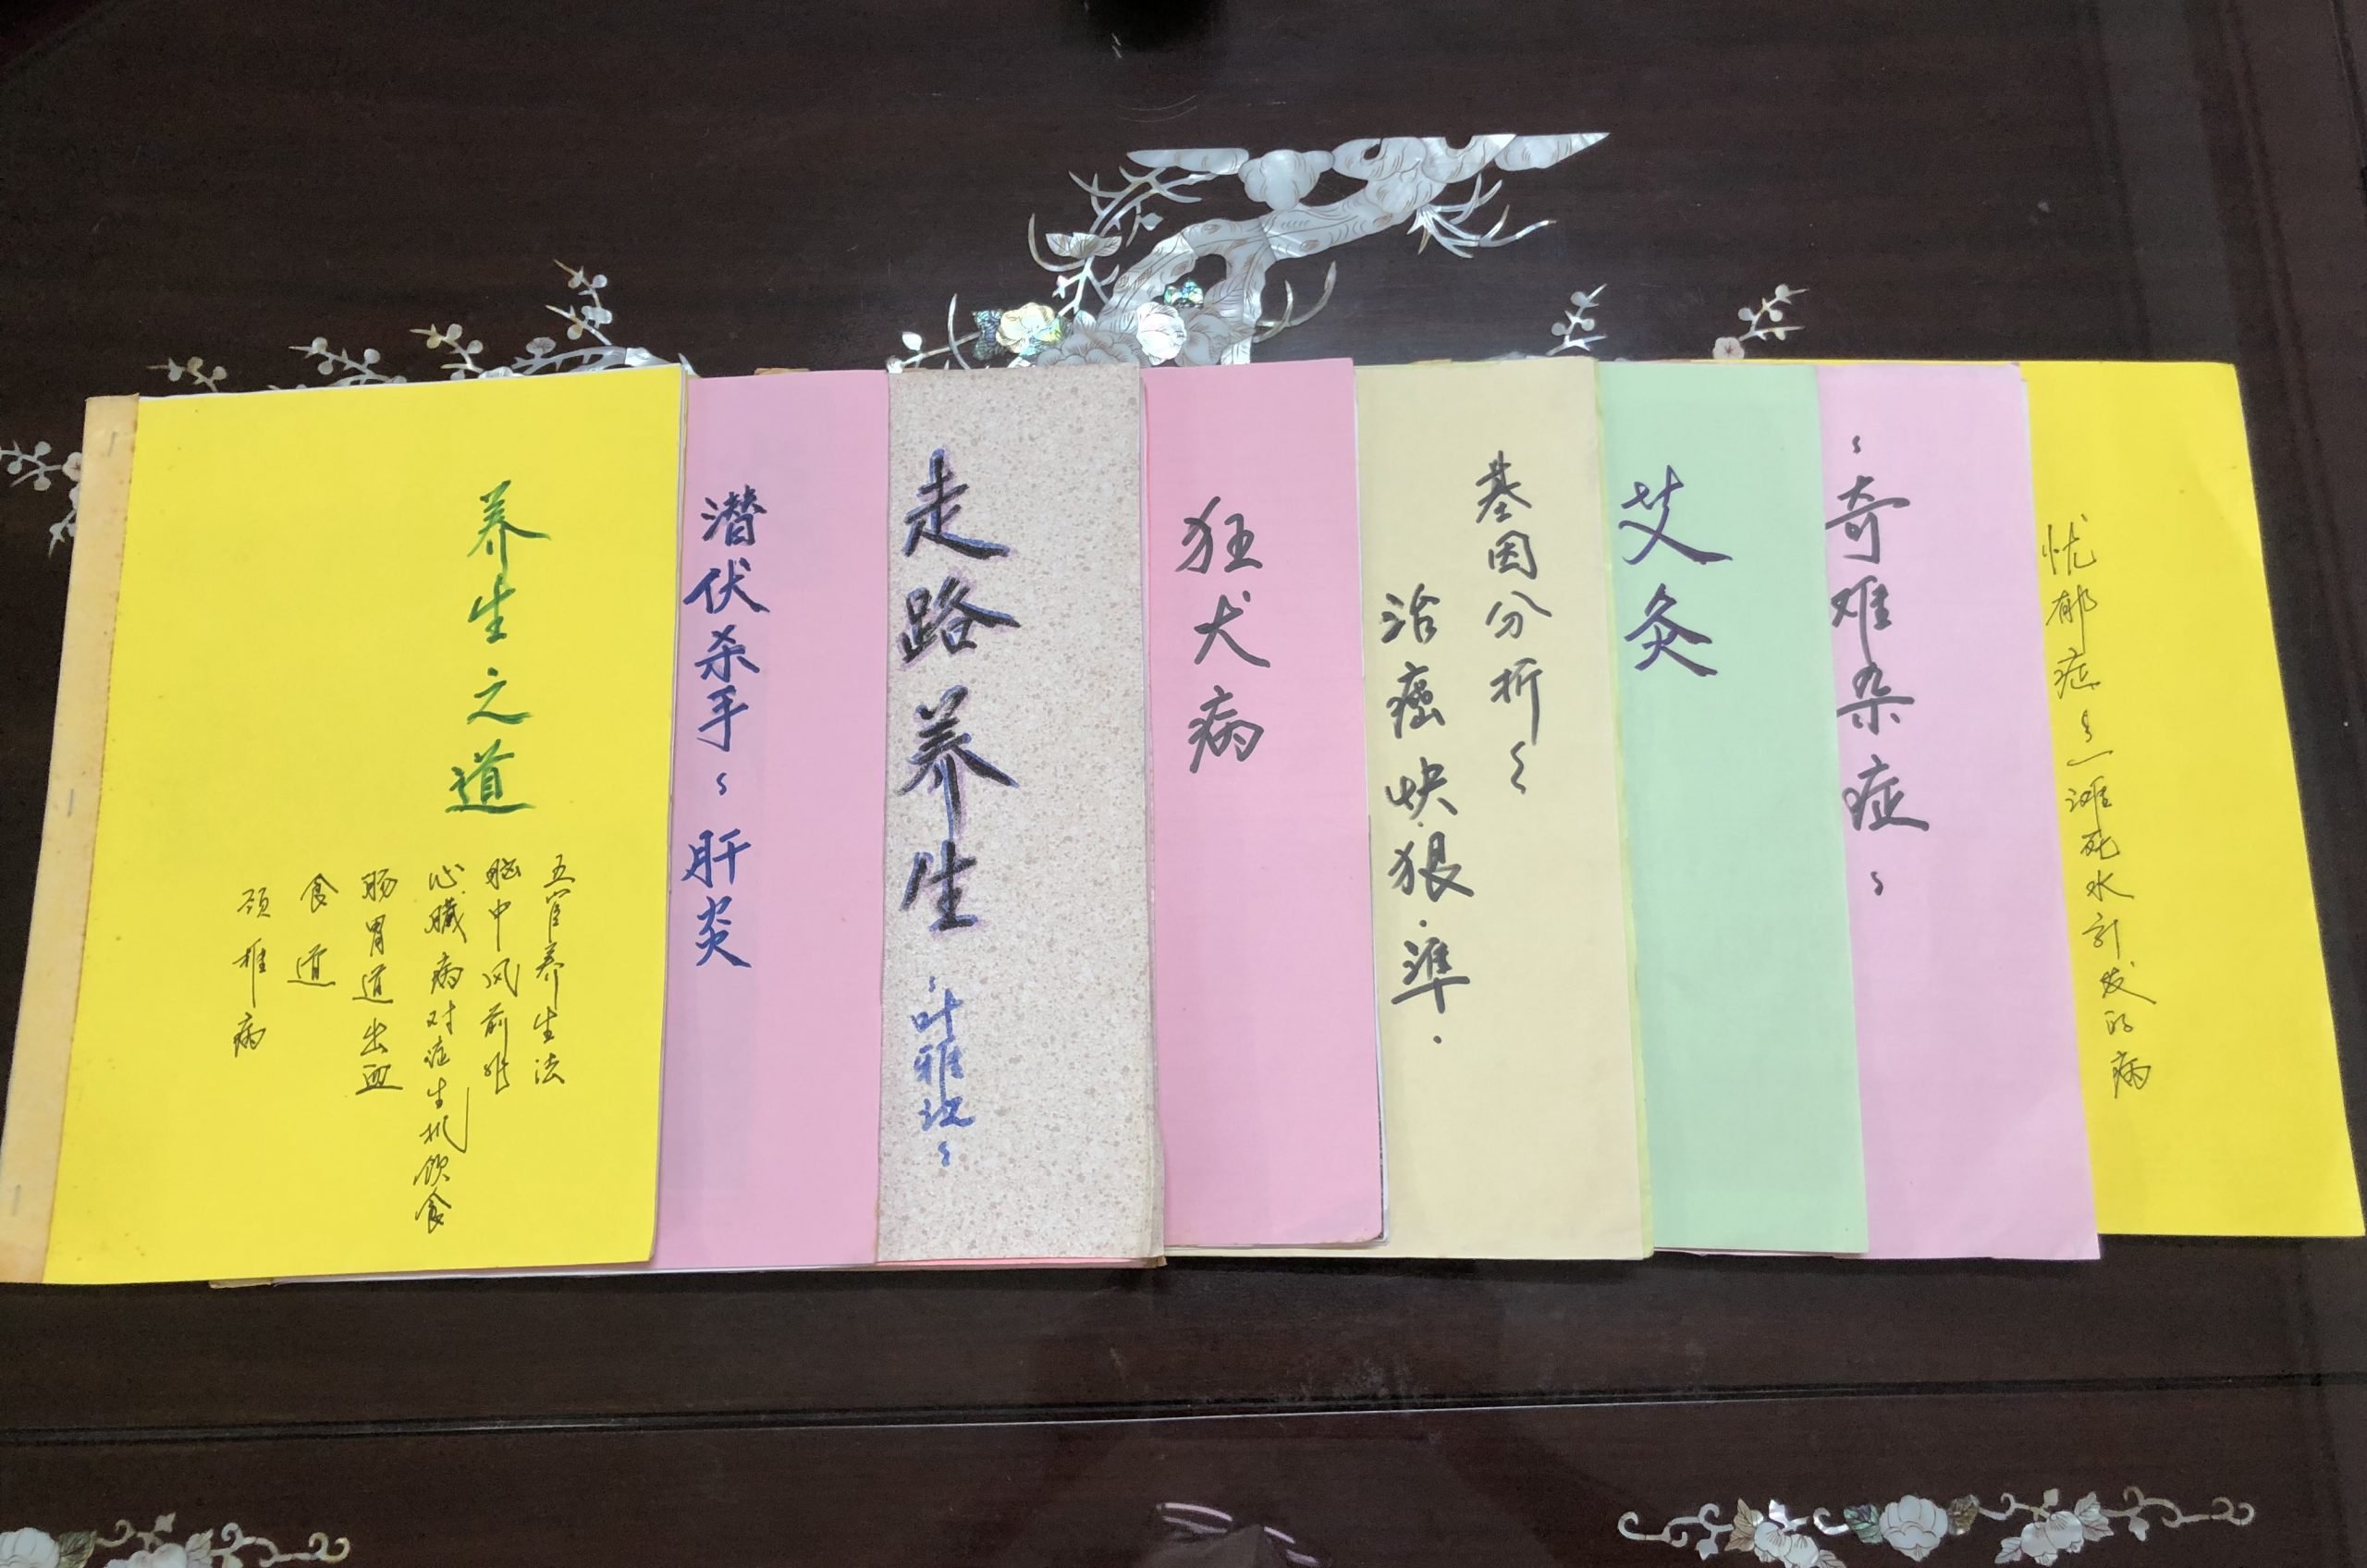 养生之道
五官养生法
脑中风前兆
心臓病对症生机饮食
肠胃道出血
食道
颈椎病
潜伏杀手~肝炎
走路养生
~叶雅
狂犬病
基因分析~
治癌快.狠.準.
艾灸
~奇难杂症~
忧郁症~一滩死水引发的病